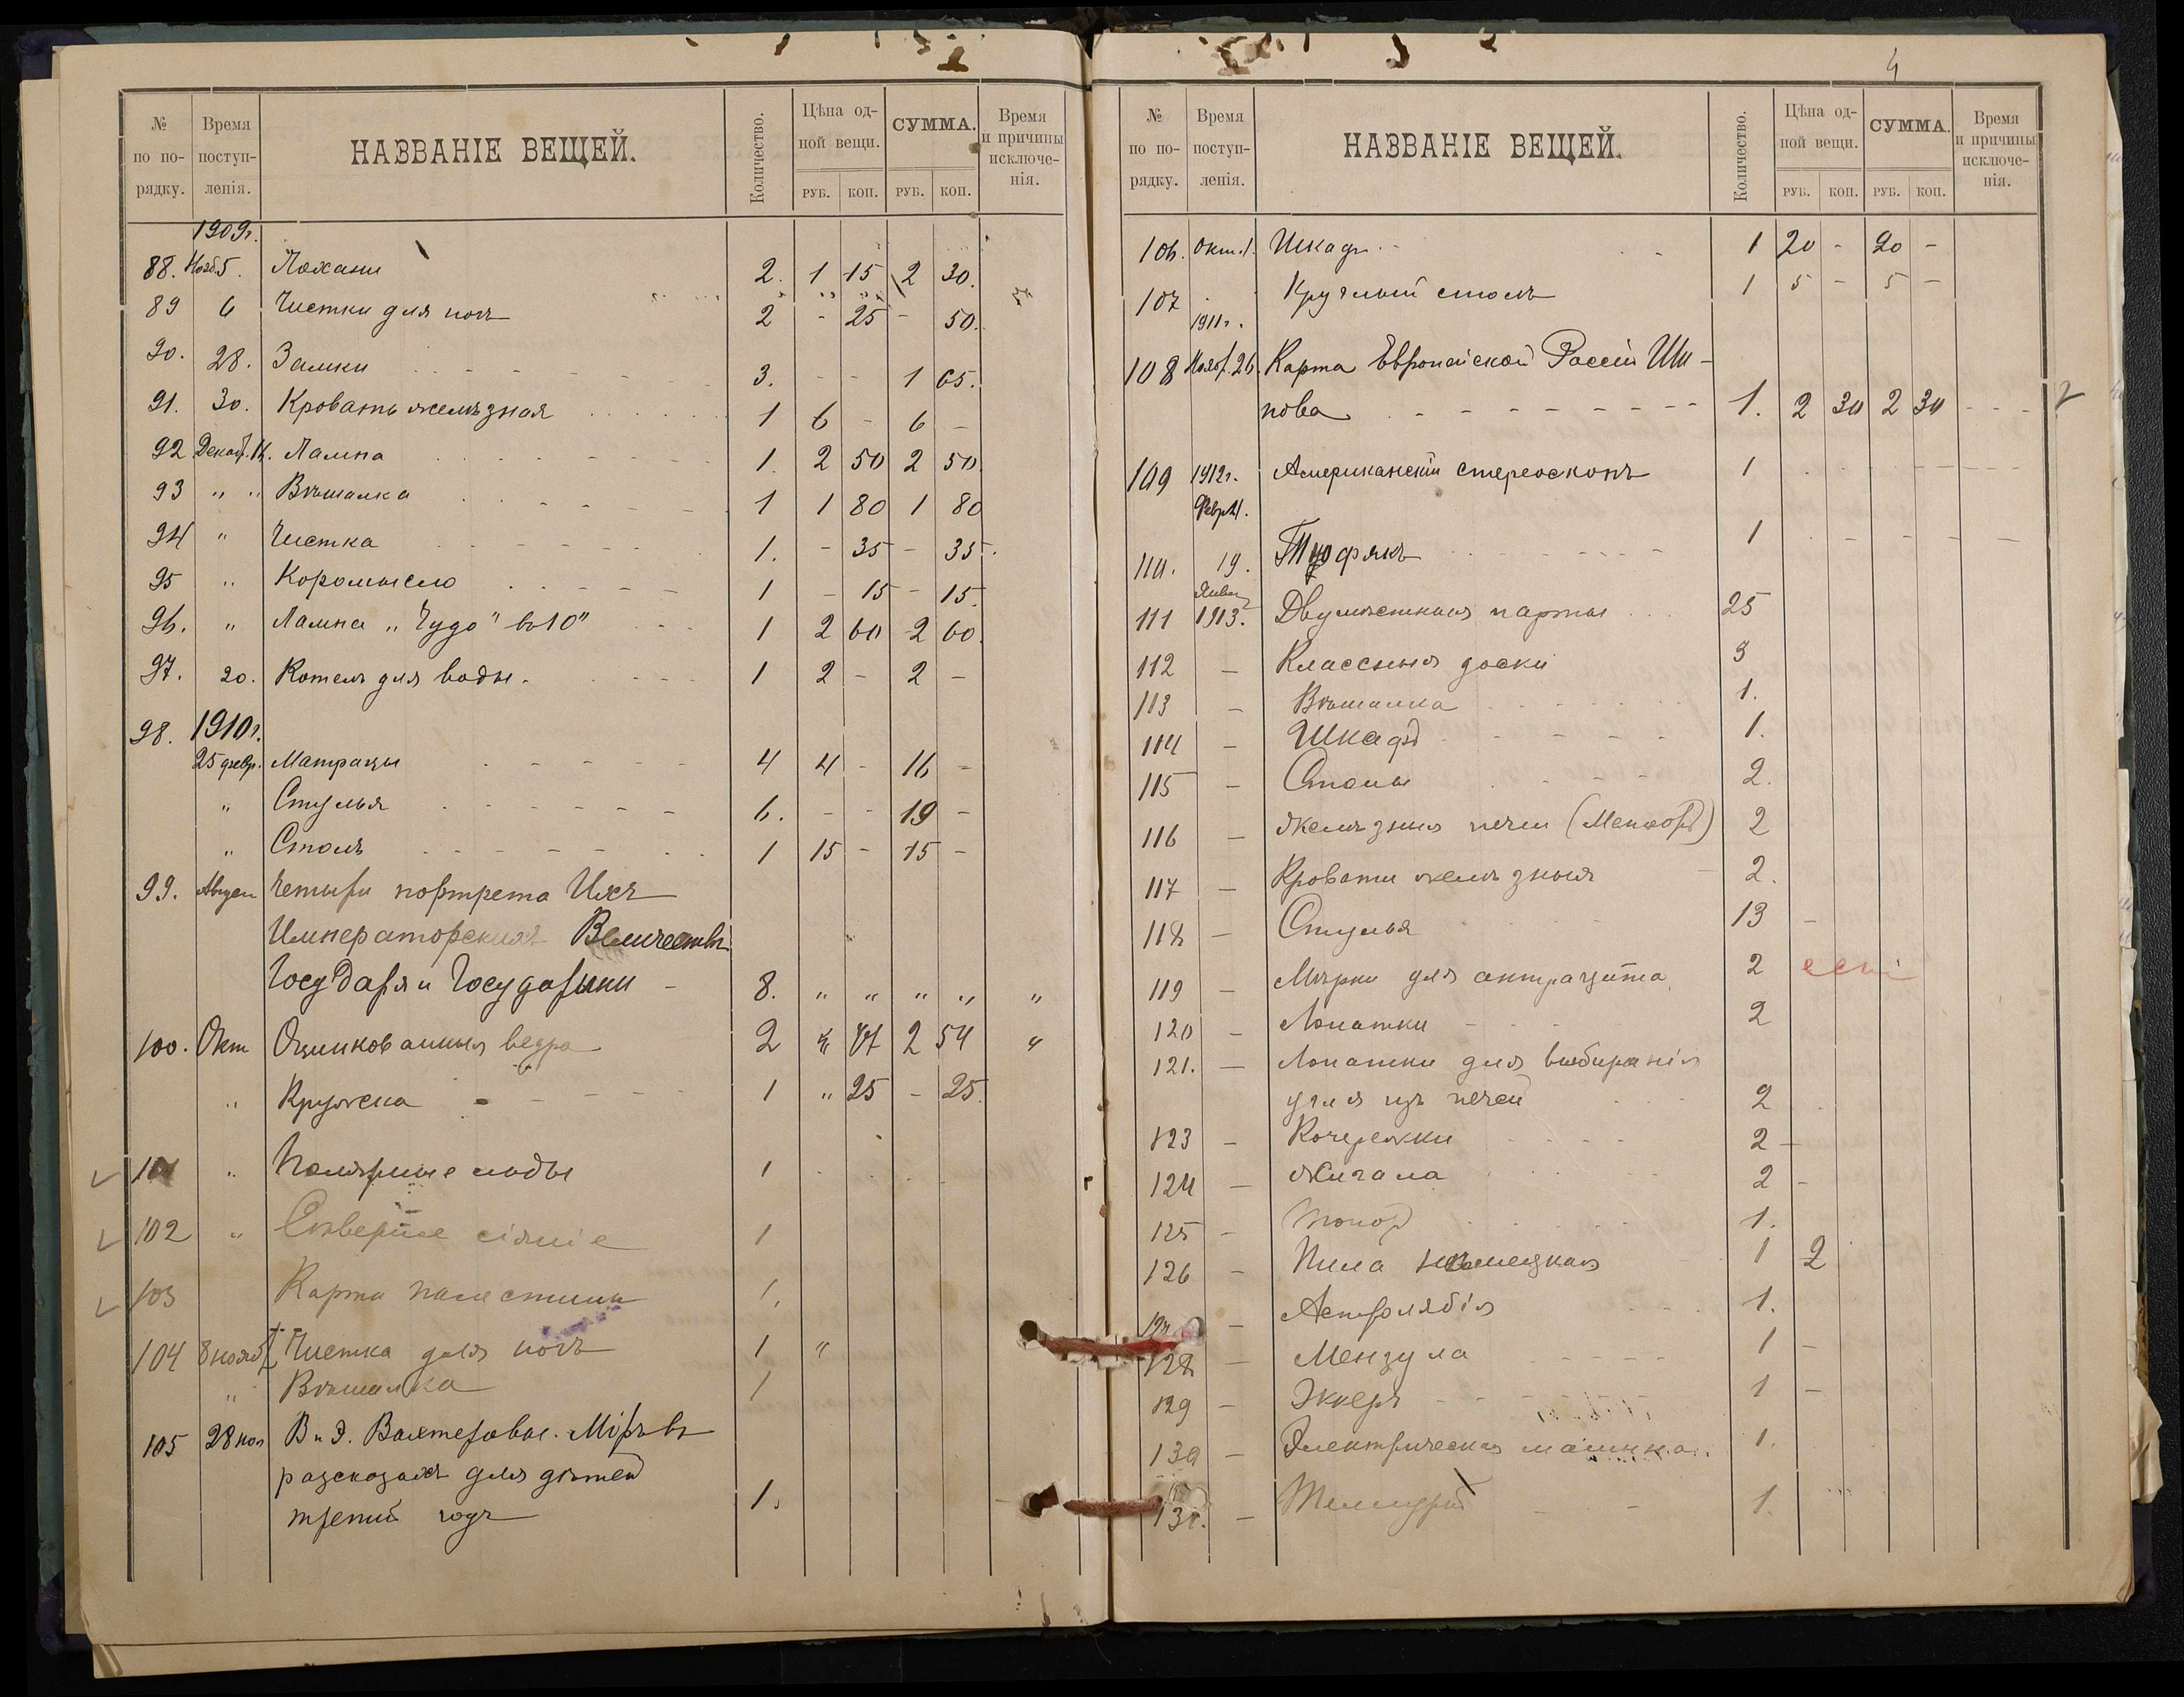 № по порядку. Время поступленія. НАЗВАНІЕ ВЕЩЕЙ. Количество. Цѣна одной вещи. РУБ. КОП. СУММА. РУБ. КОП. Время и причины исключенія.
1909г.
88. Нояб. 5. Лохани 2. 1 15 2 30.
89 6 Чистки для ногъ 2 - 25 - 50.
90. 28. Замки 3. - - 1 65.
91. 30. Кровать желѣзная 1 6 - 6 -
92 Декаб. 14. Лампа 1. 2 50 2 50.
93 " " Вѣшалка 1 1 80 1 80
94 " Чистка 1. - 35 - 35.
95 " Коромысло 1 - 15 - 15.
96. " Лампа „Чудо" в 10" 1 2 60 2 60.
97. 20. Котелъ для воды. 1 2 - 2 -
98. 1910г.
25 февр. Матрацы 4 4 - 16 -
" Стулья 6. - - 19 -
" Столъ 1 15 - 15 -
99. Август Четыри портрета Ихъ
Императорскихъ Величествъ
Государя и Государыни - 8. " " " " "
100. Окт Оцинкованныя ведра 2 2 54 "
" Кружка 1 " 25 - 25.
101 " Полярные льды 1
102 " Сѣверное сіяніе 1
103 Карта Палестины 1.
104 8 нояб Чистка для ногъ 1 "
" Вѣшалка 1
105 28 ноя В. и Э. Вахтеровы. Міръ въ
разсказахъ для дѣтей
третій годъ 1.
4
№ по порядку. Время поступленія. НАЗВАНІЕ ВЕЩЕЙ. Количество. Цѣна одной вещи. РУБ. КОП. СУММА. РУБ. КОП. Время и причины исключенія.
106. Окт. 1. Шкафъ 1 20 - 20 -
107 Круглый столъ 1 5 - 5 -
1911г.
108 Нояб. 26. Карта Европейской Россіи Ши-
пова 1. 2 30 2 30
109 1912г. Американскій стереоскопъ 1
Февр.
110. 19. Тюфякъ 1
Январ
111 1913. Двумѣстныя парты 25
112 - Классныя доски 3
113 - Вѣшалка 1.
114 - Шкафъ 1.
115 - Столы 2.
116 - Желѣзныя печи 2
117 - Кровати желѣзныя 2.
118 - Стулья 13 -
119 - Мѣрки для антрацита 2
120 - Лопатки 2
121. - Лопатки для выбиранія
угля изъ печей 2
123 - Кочережки 2 -
124 - Жигала 2 -
125 - Топоръ 1.
126 - Пила нѣмецкая 1 2
- Астролябія 1.
128 - Мензула 1 -
129 - Эккеръ 1 -
130 - Электрическая машина 1.
131. - Теллурій 1.